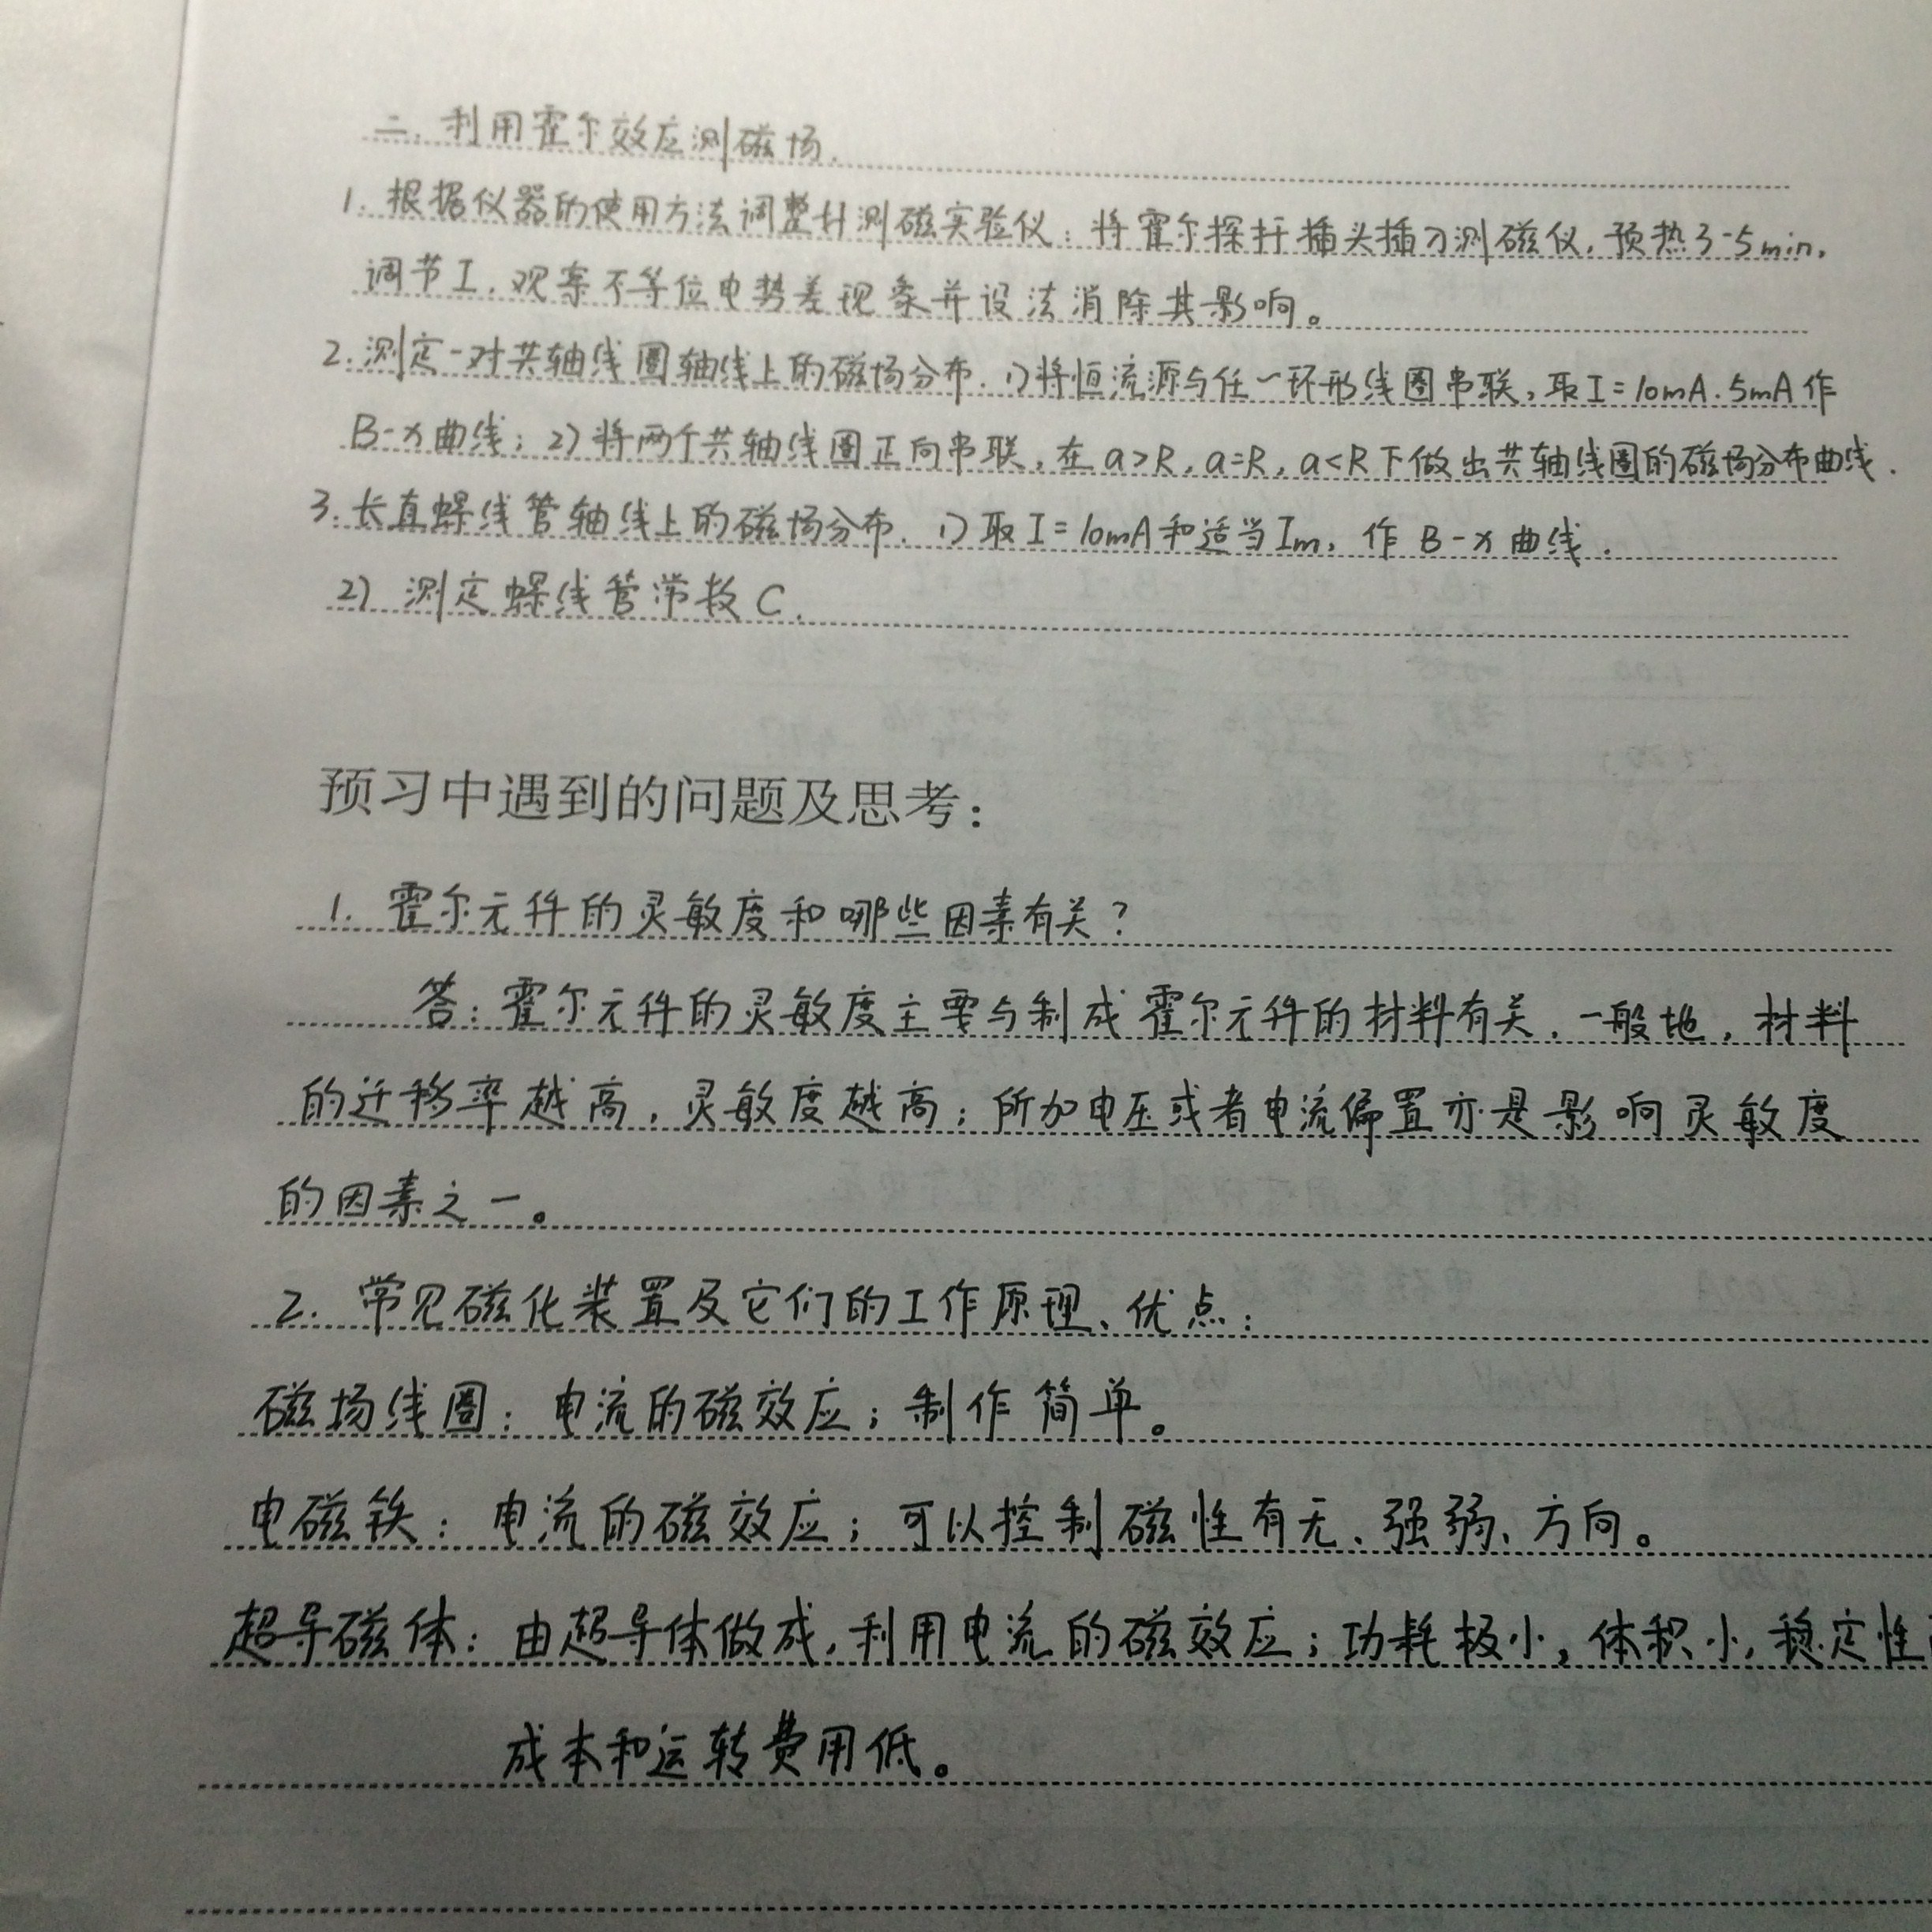 二. 利用霍尔效应测磁场.
1. 根据仪器的使用方法调整H测磁实验仪: 将霍尔探杆插头插入测磁仪, 预热3-5min,
调节I, 观察不等位电势差现象并设法消除其影响。
2. 测定一对共轴线圈轴线上的磁场分布. 1)将恒流源与任一环形线圈串联, 取I=10mA. 5mA作
B-x曲线; 2)将两个共轴线圈正向串联, 在a>R, a=R, a<R下做出共轴线圈的磁场分布曲线.
3. 长直螺线管轴线上的磁场分布. 1)取I=10mA和适当Im, 作 B-x曲线.
2) 测定螺线管常数C.
预习中遇到的问题及思考:
1. 霍尔元件的灵敏度和哪些因素有关?
答: 霍尔元件的灵敏度主要与制成霍尔元件的材料有关. 一般地, 材料
的迁移率越高, 灵敏度越高; 所加电压或者电流偏置亦是影响灵敏度
的因素之一。
2. 常见磁化装置及它们的工作原理、优点:
磁场线圈: 电流的磁效应; 制作简单。
电磁铁: 电流的磁效应; 可以控制磁性有无、强弱、方向。
超导磁体: 由超导体做成, 利用电流的磁效应; 功耗极小, 体积小, 稳定性
成本和运转费用低。